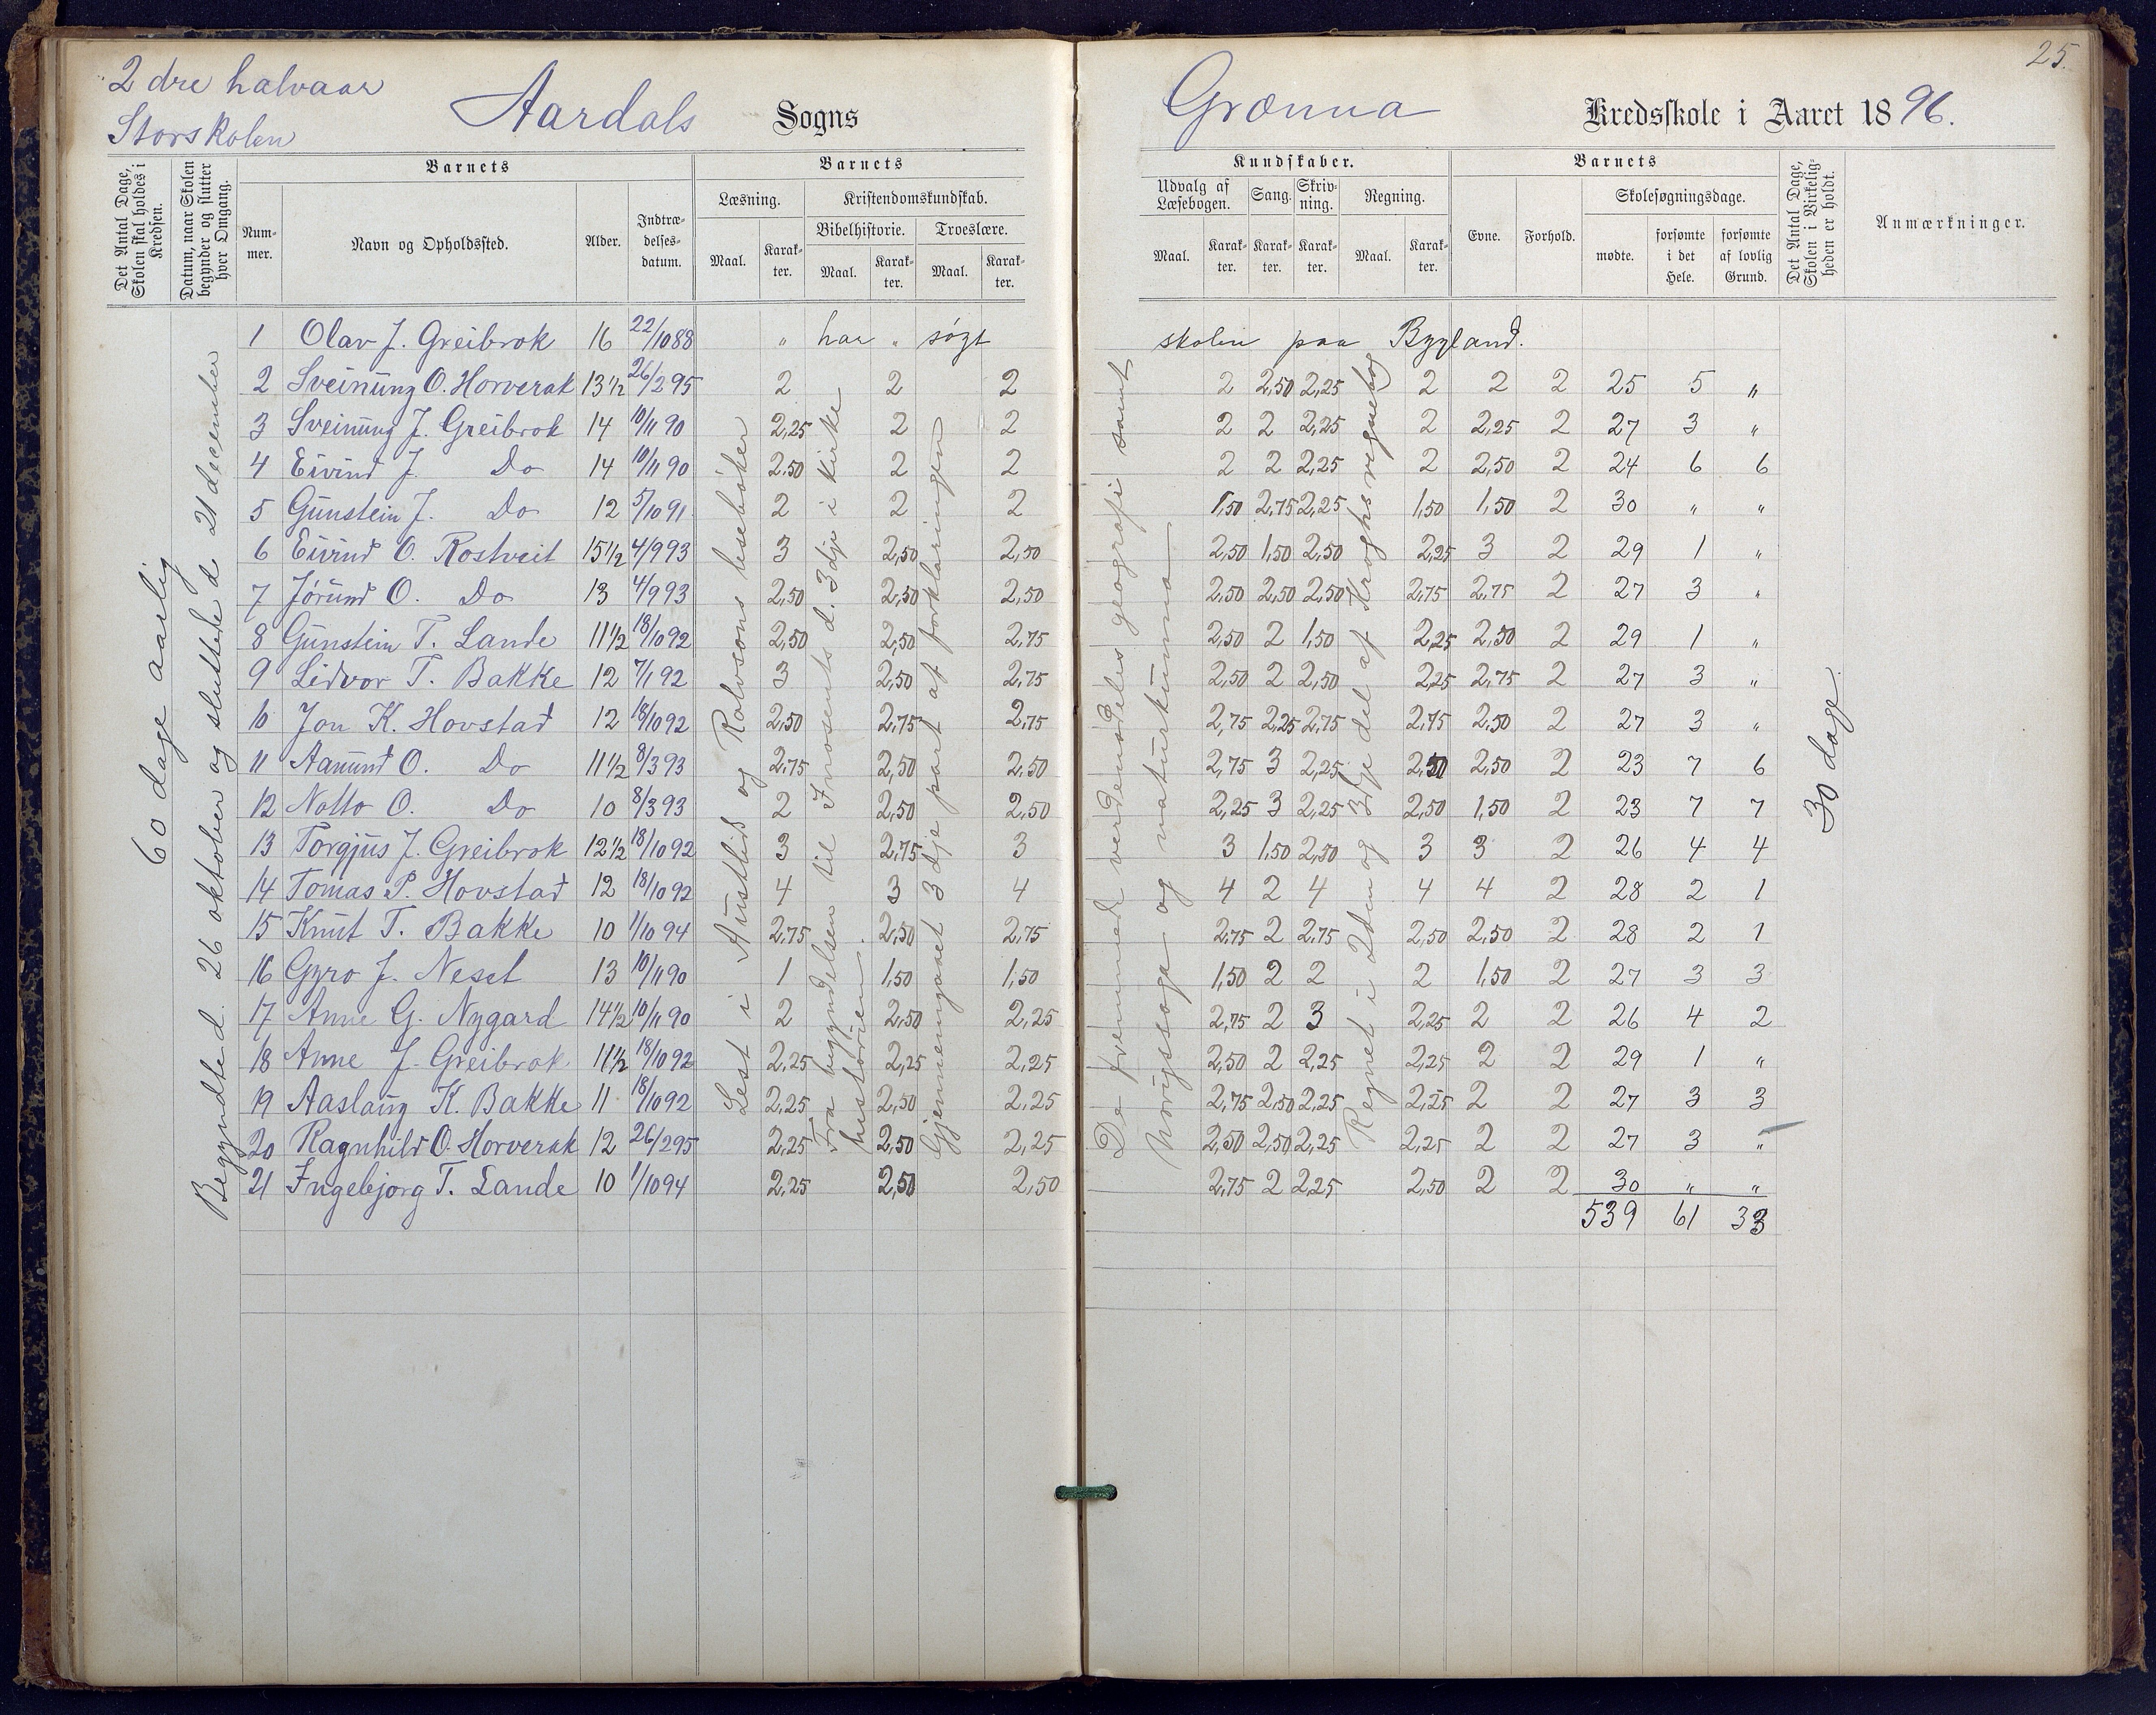 25.
2 dre halvaar
Storskolen
Aardals Sogns
Grænna Kredsskole i Aaret 1896.
Det Antal Dage, Skolen skal holdes i Kredsen.
Datum, naar Skolen begynder og slutter hver Omgang.
Barnets
Nummer.
Navn og Opholdssted.
Alder.
Indtrædelsesdatum.
Barnets
Læsning.
Maal.
Karakter.
Kristendomskundskab.
Bibelhistorie.
Maal.
Karakter.
Troeslære.
Maal.
Karakter.
Kundskaber.
Udvalg af Læsebogen.
Maal.
Karakter.
Sang.
Karakter.
Skrivning.
Karakter.
Regning.
Maal.
Karakter.
Barnets
Evne.
Forhold.
Skolesøgningsdage.
mødte.
forsømte i det Hele.
forsømte af lovlig Grund.
Det Antal Dage, Skolen i Virkeligheden er holdt.
Anmærkninger.
60 dage aarlig
Begyndte d. 26 oktober og sluttede d 21 december
1 Olav J. Greibrok 16 22/10 88 " har " søgt skolen paa Bygland.
2 Sveinung O. Horverak 13 1/2 26/2 95 2 2 2 2 2,50 2,25 2 2 2 25 5 "
3 Sveinung J. Greibrok 14 10/11 90 2,25 2 2 2 2 2,25 2 2,25 2 27 3 "
4 Eivind J. Do 14 10/11 90 2,50 2 2 2 2 2,25 2 2,50 2 24 6 6
5 Gunstein J. Do 12 5/10 91 2 2 2 1,50 2,75 2,25 1,50 1,50 2 30 " "
6 Eivind O. Rostveit 15 1/2 4/9 93 3 2,50 2,50 2,50 1,50 2,50 2,25 3 2 29 1 "
7 Jørund O. Do 13 4/9 93 2,50 2,50 2,50 2,50 2,50 2,50 2,75 2,75 2 27 3 "
8 Gunstein T. Lande 11 1/2 18/10 92 2,50 2,50 2,75 2,50 2 1,50 2,25 2,50 2 29 1 "
9 Lidvor T. Bakke 12 7/1 92 3 2,50 2,75 2,50 2 2,50 2,25 2,75 2 27 3 "
10 Jon K. Hovstad 12 18/10 92 2,50 2,75 2,75 2,75 2,25 2,75 2,75 2,50 2 27 3 "
11 Aamund O. Do 11 1/2 8/3 93 2,75 2,50 2,50 2,75 3 2,25 2,50 2,50 2 23 7 6
12 Notto O. Do 10 8/3 93 2 2,50 2,50 2,25 3 2,25 2,50 1,50 2 23 7 7
13 Torgjus J. Greibrok 12 1/2 18/10 92 3 2,75 3 3 1,50 2,50 3 3 2 26 4 4
14 Tomas P. Hovstad 12 18/10 92 4 3 4 4 2 4 4 4 2 28 2 1
15 Knut T. Bakke 10 1/10 94 2,75 2,50 2,75 2,75 2 2,75 2,50 2,50 2 28 2 1
16 Gyro J. Neset 13 10/11 90 1 1,50 1,50 1,50 2 2 2 1,50 2 27 3 3
17 Anne G. Nygard 14 1/2 10/11 90 2 2,50 2,25 2,75 2 3 2,25 2 2 26 4 2
18 Anne J. Greibrok 11 1/2 18/10 92 2,25 2,25 2,25 2,50 2 2,25 2,25 2 2 29 1 "
19 Aaslaug K. Bakke 11 18/10 92 2,25 2,50 2,25 2,75 2,50 2,25 2,25 2 2 27 3 3
20 Ragnhild O. Horverak 12 26/2 95 2,25 2,50 2,25 2,50 2,50 2,25 2,25 2 2 27 3 "
21 Ingebjørg T. Lande 10 1/10 94 2,25 2,50 2,50 2,75 2 2,25 2,50 2 2 30 " "
539 61 33
Lest i Austlid og Rolvsons lesebøker
Fra begyndelsen til d. 3dje i kirkehistorien.
Gjennemgaaet 3dje part af forklaringen
De fremmede verdensdeles geografi samt
Norigssoga og naturkunna
Regnet i 2den og 3dje del af Kroghs regnebog
30 dage.